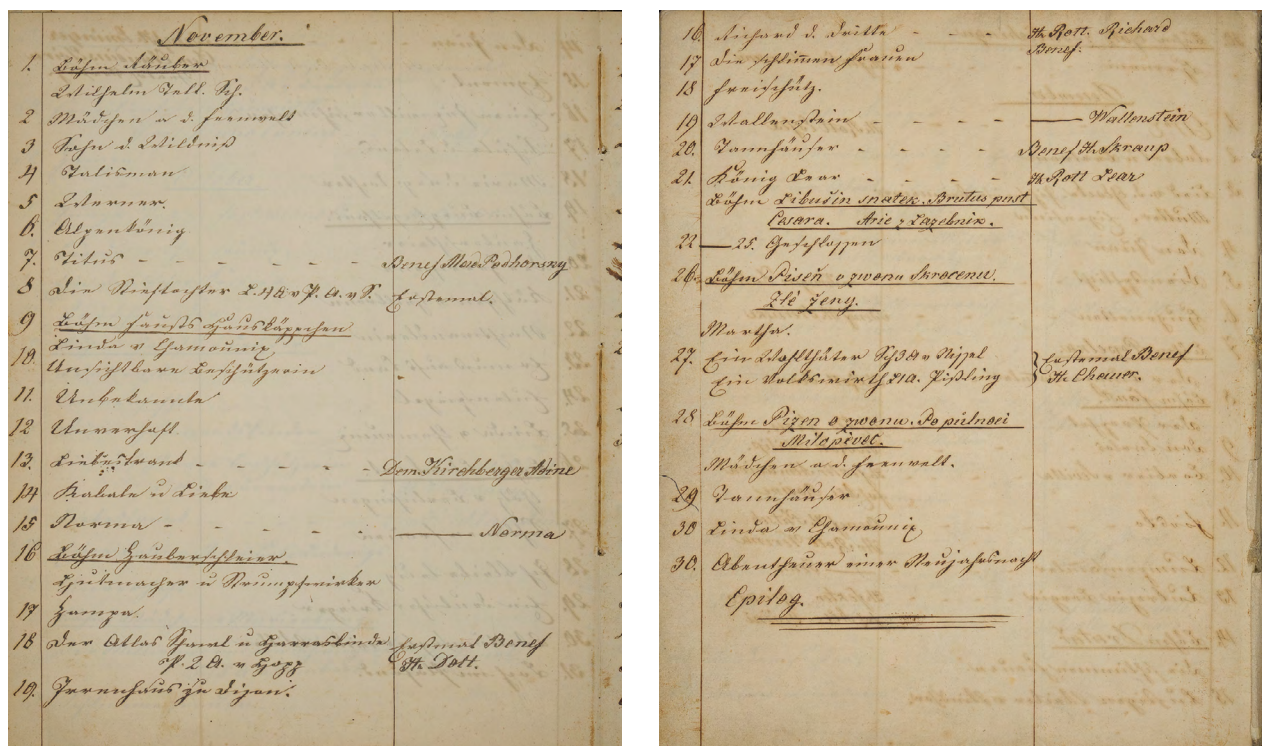 November.
1. Böhm Räuber
Wilhelm Tell. Sch.
2 Mädchen a d. Feenwelt
3 Sohn d. Wildniß
4 Talisman
5 Werner.
6. Alpenkönig
7. Titus - - - - - - Benef Mad Podhorsky
8 Die Stieftochter L. 4 A v P. A. v S. Erstemal.
9 Böhm Fausts Hauskäppchen
10. Linda v Chamounix
Unsichtbare Beschützerin
11. Unbekannte
12 Unverhoft
13. Liebestrank - - - - - Dem. Kirchberger Adine
14 Kabale u Liebe
15 Norma - - - - - —— Norma
16 Böhm Zauberschleier.
Hutmacher u Strumpfwirker
17 Zampa.
18 Der Atlas Schawl u Harrasbinde Erstmal Benef
P. 2 A. v Hopp H. Dott.
19. Irrenhaus zu Dijon.
16 Richard d. Dritte - - - H. Rott. Richard
Benef.
17 Die schlimmen Frauen
18 Freischütz.
19 Wallenstein - - - - —— Wallenstein
20. Tannhäuser - - - - Benef H. Skraup
21. König Lear - - - - H. Rott Lear
Böhm Libušin snatek. Brutus pust
Cesara. Arie z Lazebnik.
22 — 25. Geschlossen
26. Böhm Piseň o zwonu Skracenu.
Zlé ženy.
Martha.
27. Ein Wohlthäter Sch 3 A v Nissel } Erstemal Benef
Ein Volkswirth 2 A. Pißling H. Chemer.
28 Böhm Pizen o zwonu. Po půlnoci
Milopěvec.
Mädchen a. d. Feenwelt.
29 Tannhäuser
30 Linda v Chamounix
30. Abentheuer einer Neujahrsnacht
Epilog.